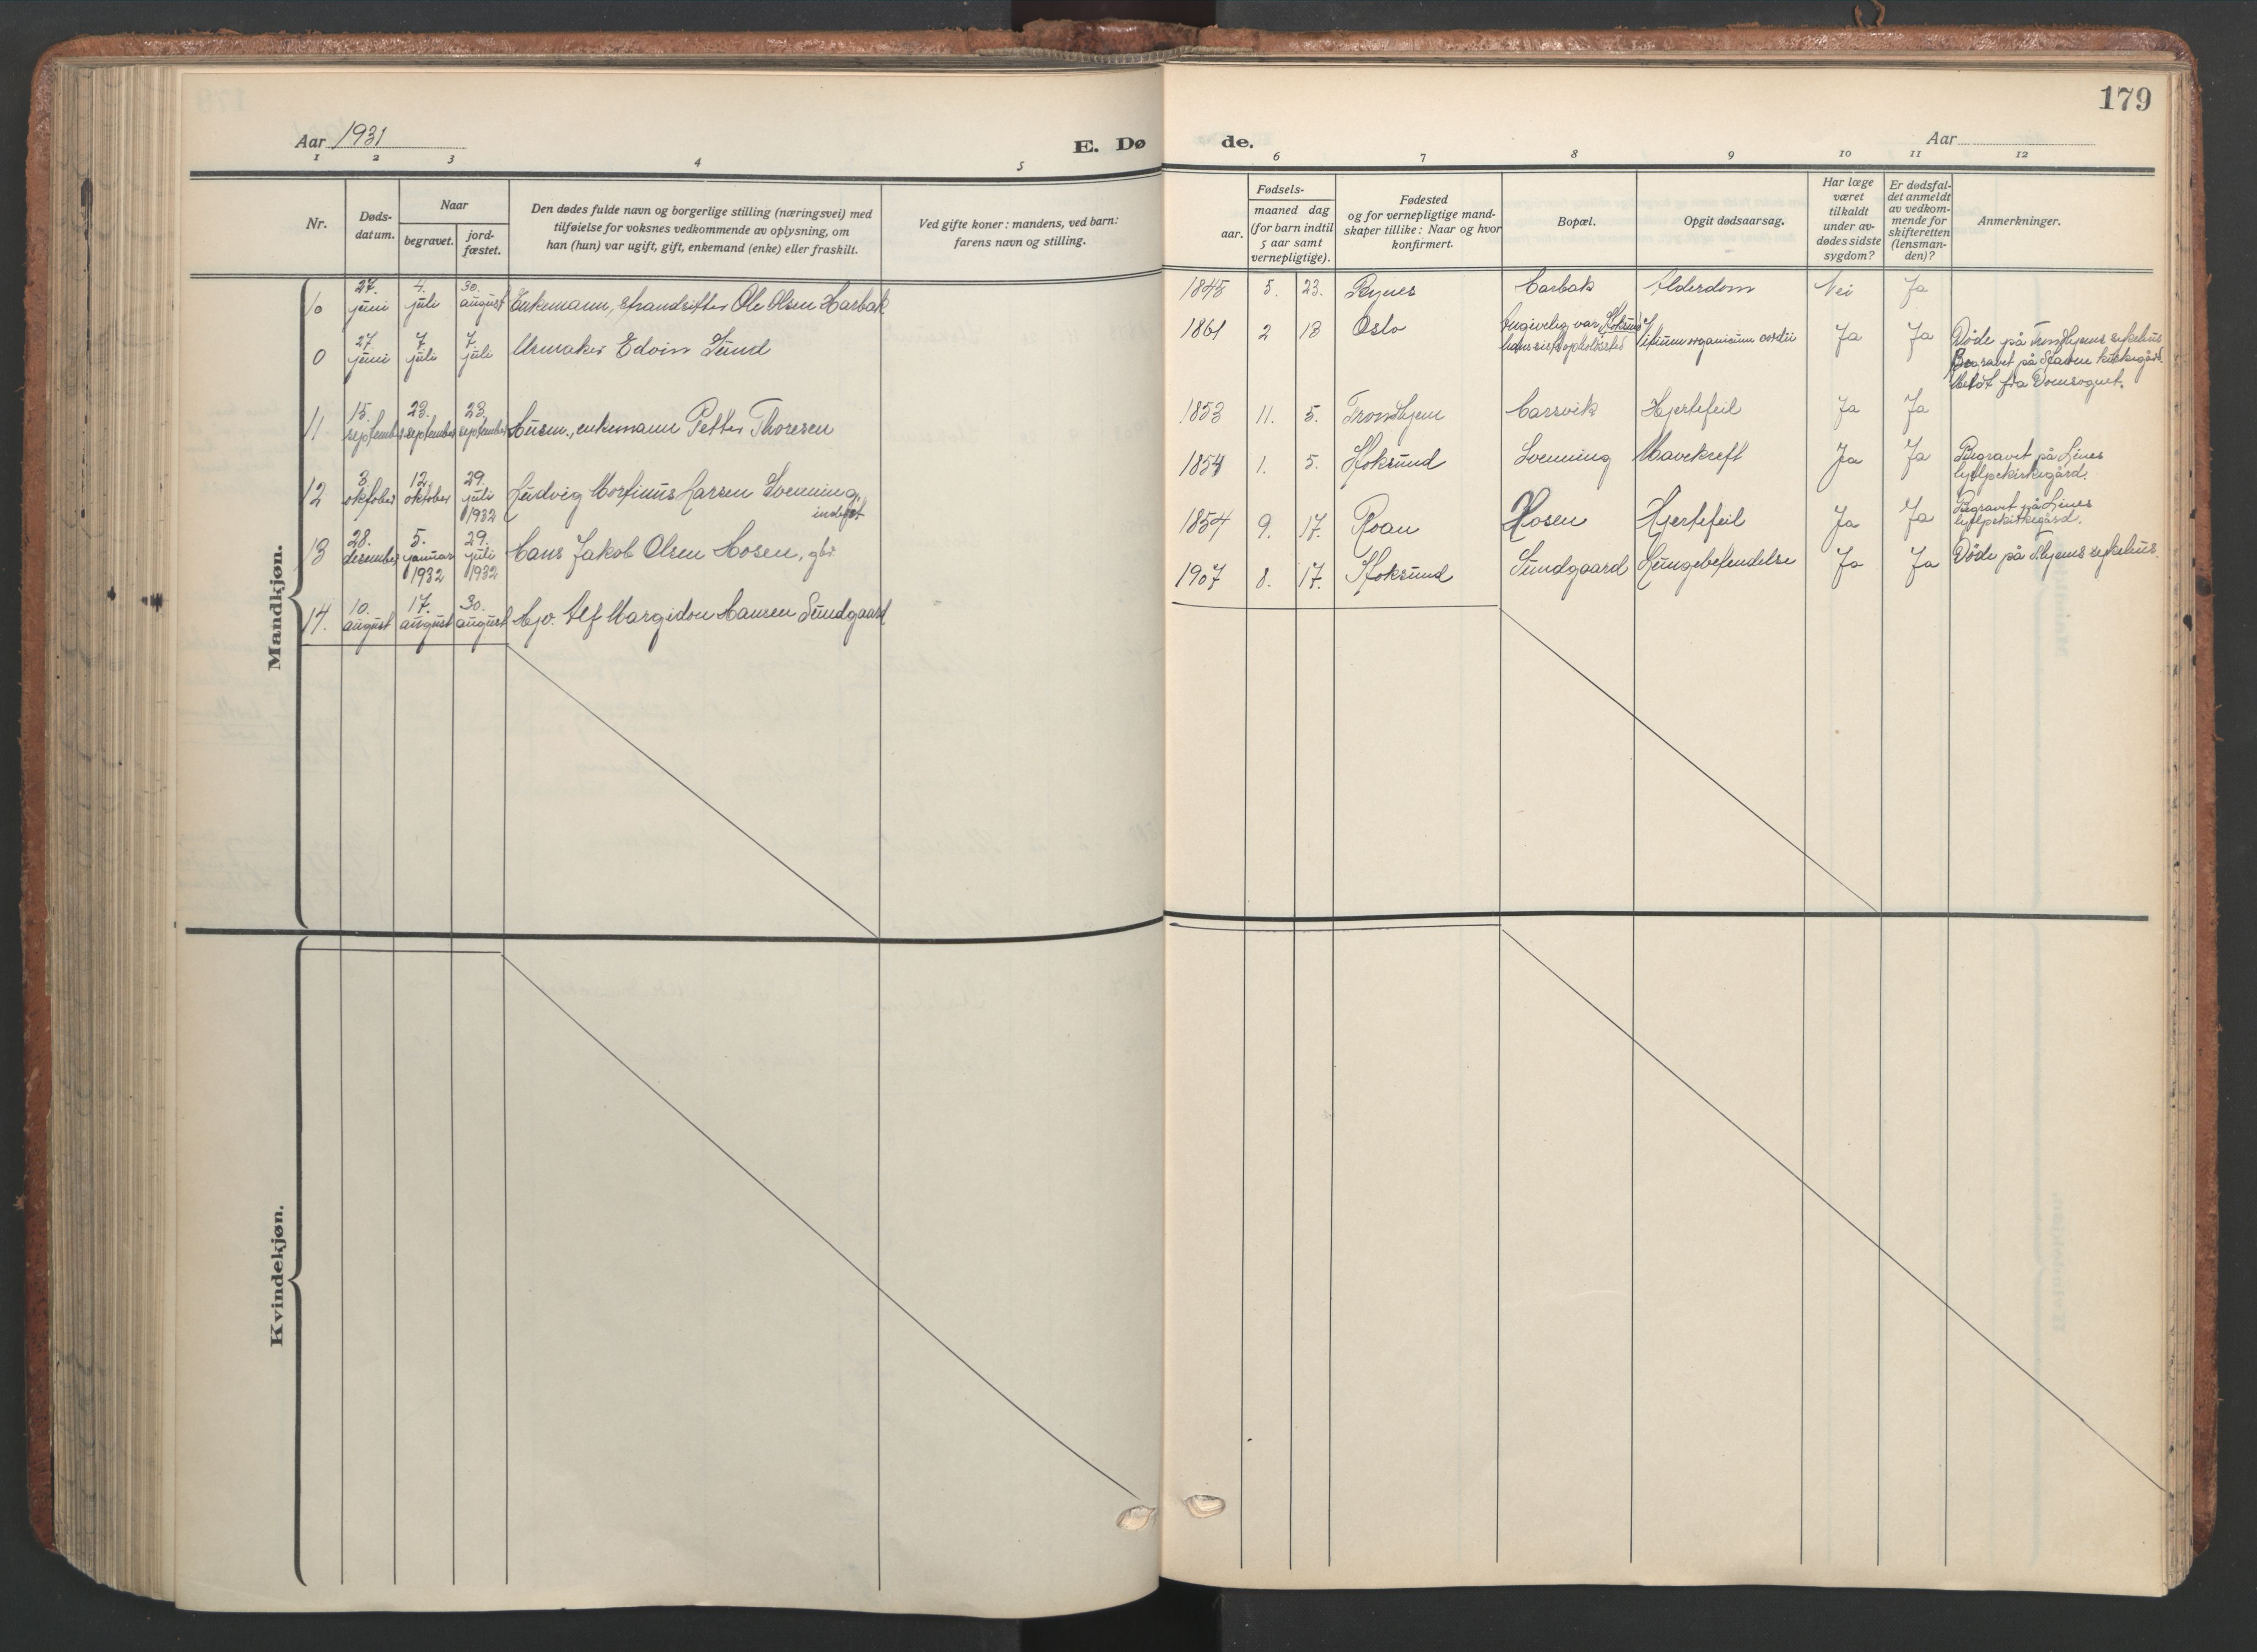 179
Aar 1931
E. Dø
de.
Aar
1 2 3 4 5
6 7 8 9 10 11 12
Nr.
Døds-
datum.
Naar
begravet.
jord-
fæstet.
Den dødes fulde navn og borgerlige stilling (næringsvei) med
tilføielse for voksnes vedkommende av oplysning, om
han (hun) var ugift, gift, enkemand (enke) eller fraskilt.
Ved gifte koner: mandens, ved barn:
farens navn og stilling.
Fødsels-
aar.
maaned dag
(for barn indtil
5 aar samt
vernepligtige).
Fødested
og for vernepligtige mand-
skaper tillike: Naar og hvor
konfirmert.
Bopæl.
Opgit dødsaarsag.
Har læge
været
tilkaldt
under av-
dødes sidste
sygdom?
Er dødsfal-
det anmeldt
av vedkom-
mende for
skifteretten
(lensman-
den)?
Anmerkninger.
Mandkjøn.
10 27. juni 4. juli 30. august Enkemann, strandsitter Ole Olsen Harbak 1848 5. 23. Bynes Harbak Alderdom Nei Ja
0 27. juni 7. juli 7. juli Urmaker Edvin Lund 1861 2 13 Oslo Angivelig var Stoksund
hans sist opholdssted Vitium organicum cordii Ja Ja Døde på Trondhjems sykehus
Begravet på Stavne kirkegård.
Meldt fra Domsognet.
11 15. september 23. september 23. september Husm., enkemann Petter Thoresen 1853 11. 5. Trondhjem Harsvik Hjertefeil Ja Ja
12 3. oktober 12. oktober 29. juli 1932 Ludvig Morfinus Larsen Svenning,
inderst 1854 1. 5. Stoksund Svenning Mavekreft Ja Ja Begravet på Lines
hjelpekirkegård.
13 28. desember 5. januar 1932 29. juli 1932 Hans Jakob Olsen Hosen, gbr. 1854 9. 17. Roan Hosen Hjertefeil Ja Ja Begravet på Lines
hjelpekirkegård.
14. 10. august 17. august 30. august Alf Margidon Hansen Sundgaard 1907 8. 17. Stoksund Sundgaard Lungebetendelse Ja Ja Døde på Thjems sykehus.
Kvindekjøn.